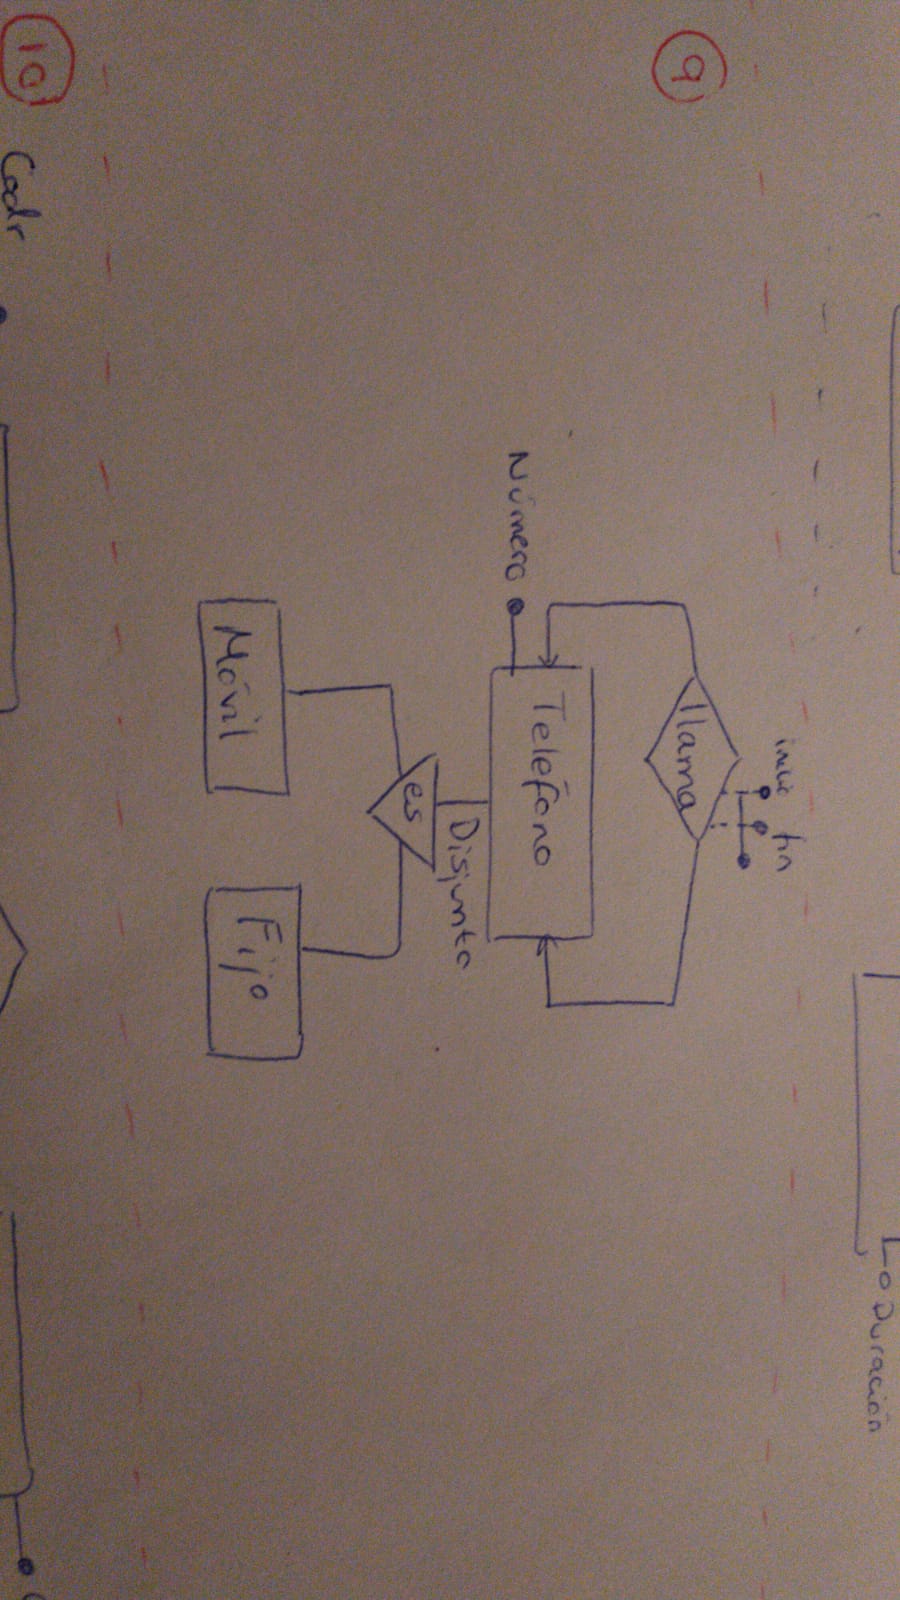 Duración
inicio fin
9
llama
Teléfono
Número
Disjunto
es
Móvil
Fijo
10
Codr